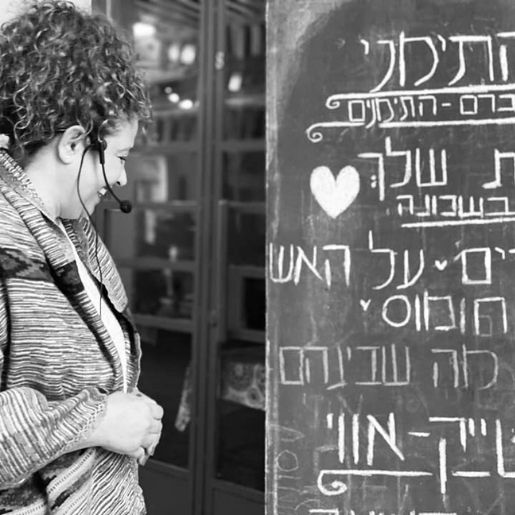 התימני
ברם - התימנים
ת שלך
בשכונה
ים על האש
חומוס
מה שביניהם
טייק-אווי